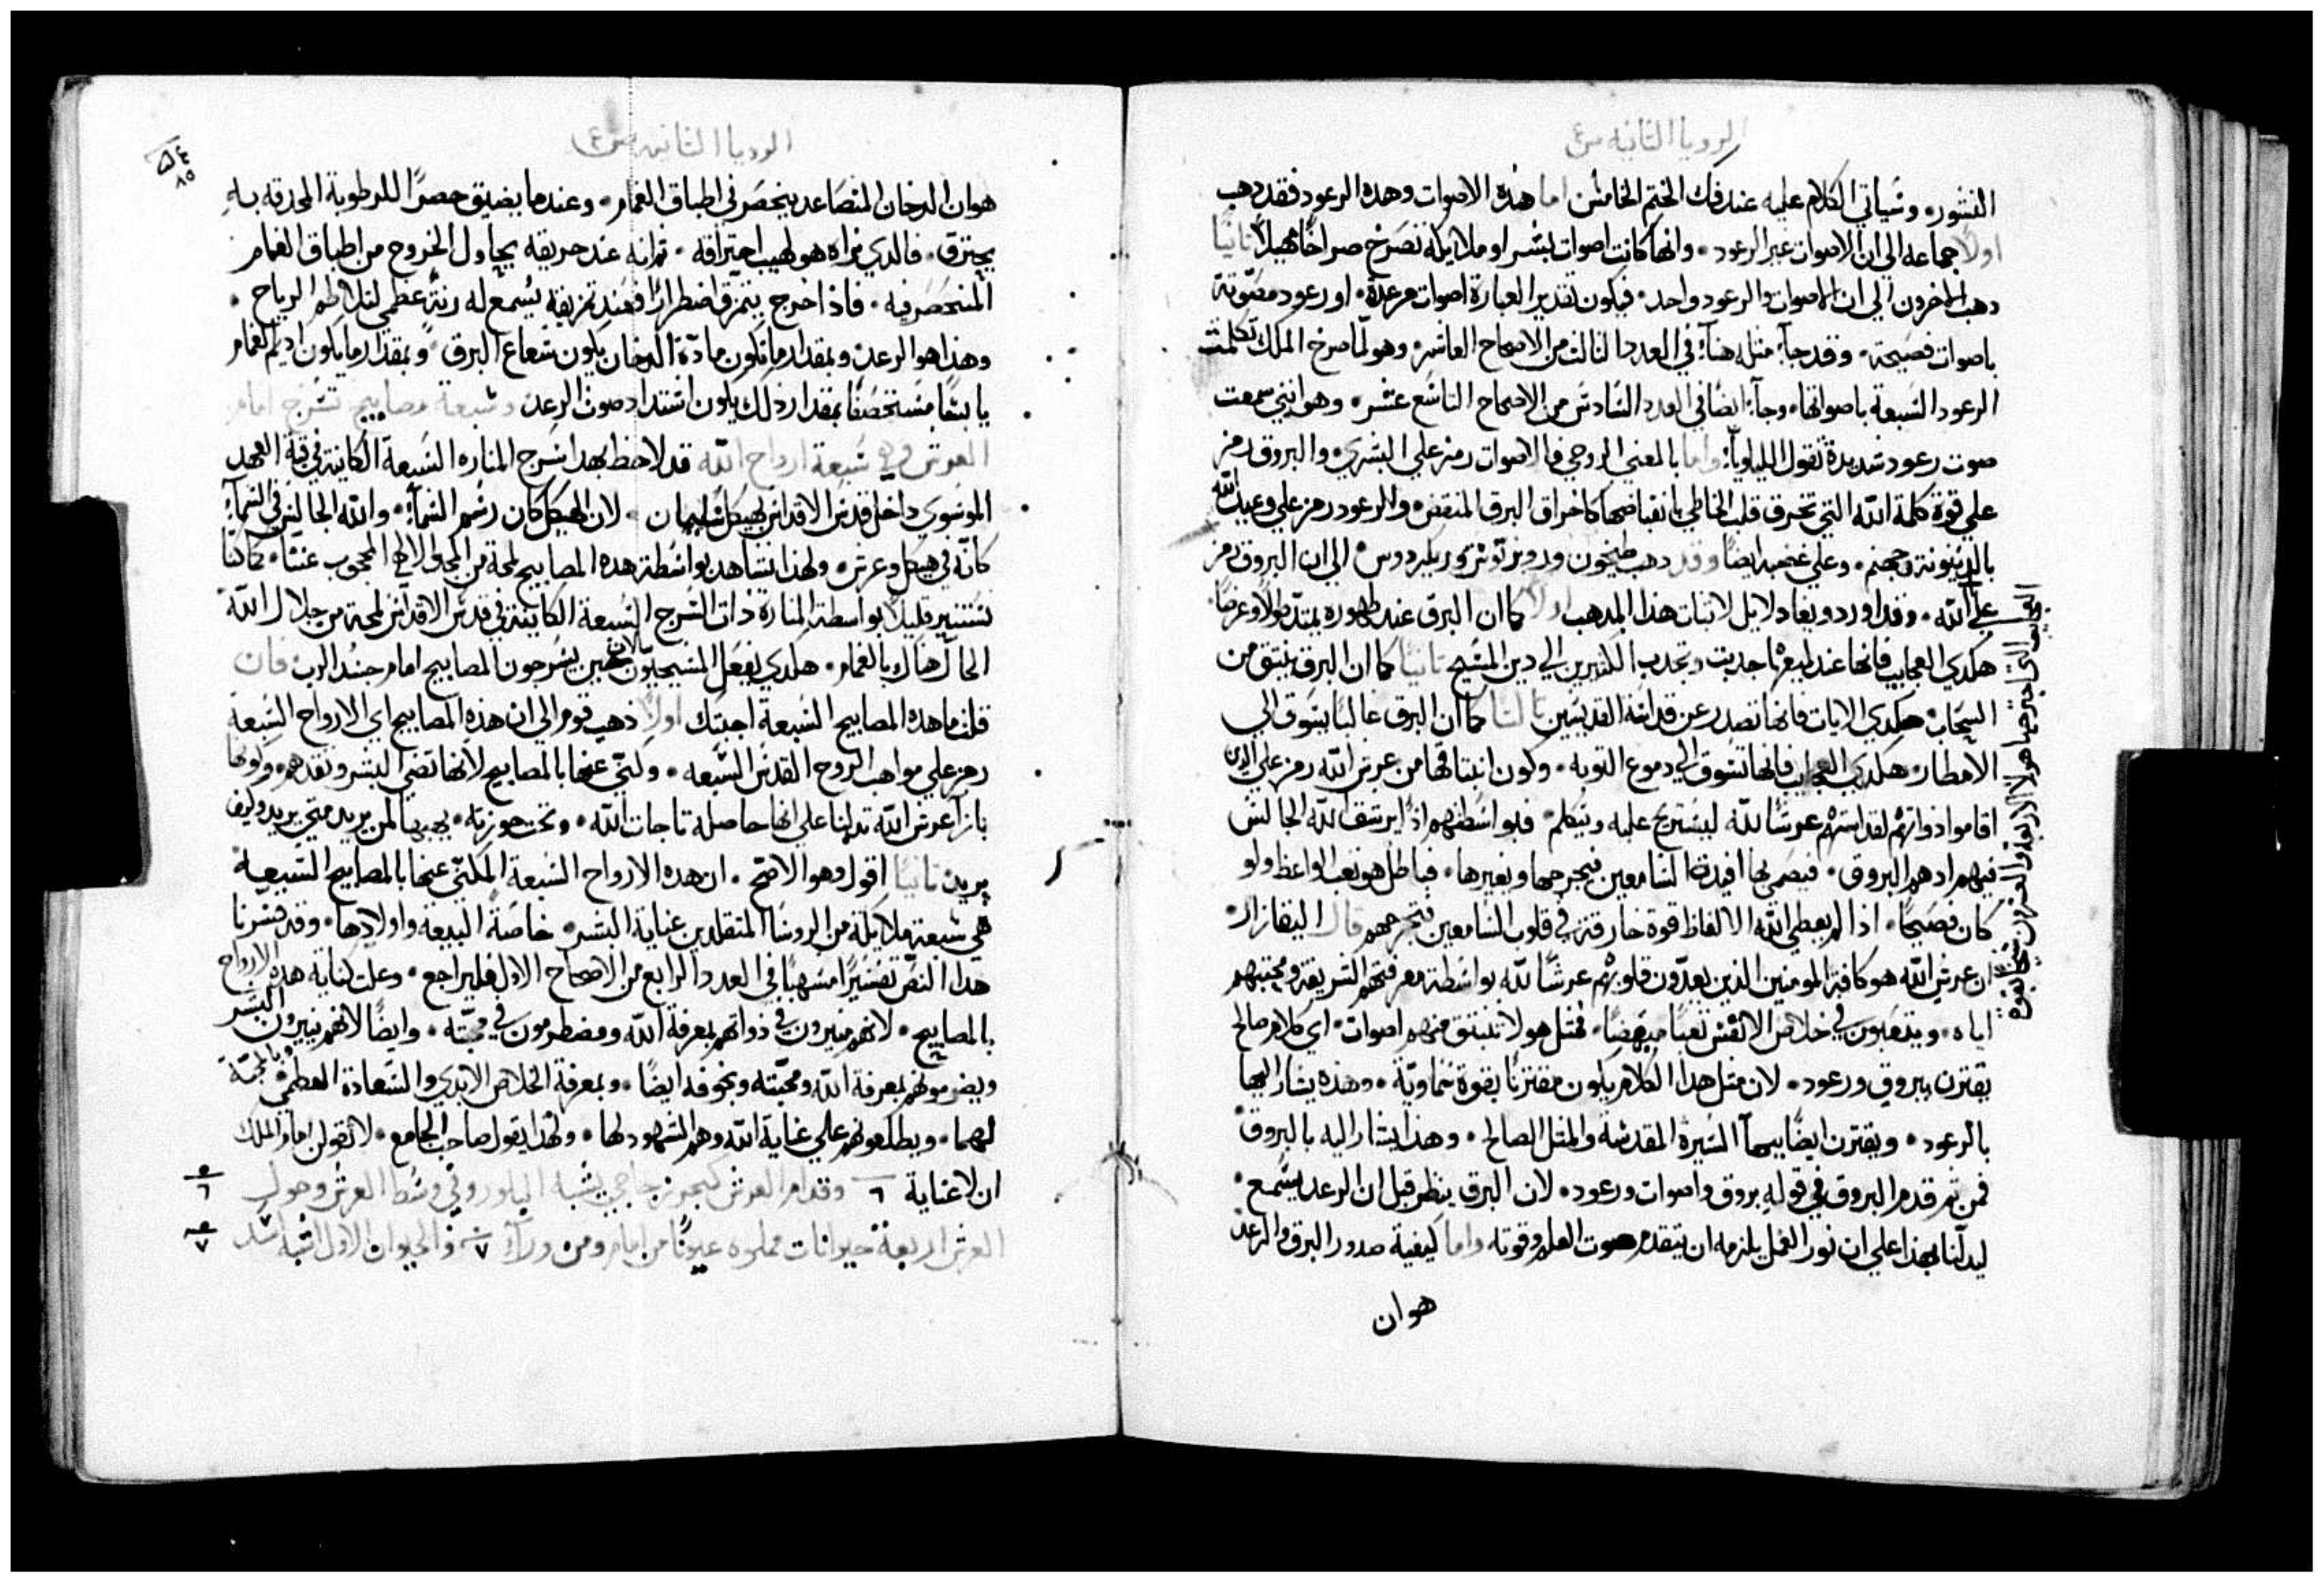 الرويا الثانيه ص٤
النشور. وسياتي الكلام عليه عند فك الختم الخامس اما هذه الاصوات وهده الرعود فقد دهب
اولًا جماعه الي ان الاصوات غير الرعود. وانها كانت اصوات بشر او ملايكة تصرخ صراخًا مهيلًا ثانيًا
دهب اخرون الي ان الاصوات والرعود واحد. فيكون تقدير العبارة اصوات مرعدة. او رعود مصوتة
باصوات فصيحة. وقد جآء مثله هنآء في العدد الثالث من الاصحاح العاشر. وهو لما صرخ الملك تكلمت
الرعود السبعة باصواتها. وجآء ايضًا في العدد السادس من الاصحاح التاسع عشر. وهو انني سمعت
صوت رعود شديدة تقول الليلويآ. واما بالمعني الروحي فالاصوات رمز علي البشري. والبروق رمز
علي قوة كلمة الله التي تخرق قلب الخاطي بانقضاضها كاخراق البرق المنقض. والرعود رمز علي وعيد الله
بالدينونة وجهنم. وعلي غضبه ايضًا وقد دهب الي ان البروق رمز
علي الله. وقد اورد ويغا دلايل لاثبات هذا المدهب اولًا كما ان البرق عند ظهوره يمتد طولًا وعرضًا.
هكدي العجايب فانها عند جدبت وتجدب الكثيرين الي دين المسيح ثانيًا كما ان البرق ينبثق من
السحاب. هكدي الايات فانها تصدر عن قداسة القديسين ثالثًا كما ان البرق غالبًا يسوق الي
الامطار. هكدي العجايب فانها تسوق الي دموع التوبه. وكون انبثاقها من عرش الله رمز علي الدين
اقاموا ذواتهم لقداستهم عرشًا لله ليستريح عليه ويتكلم. فبواسطتهم اذًا يرشق الله الجالس
فيهم ادهم البروق. فيصمي بها افيدة السامعين فيجرحها ويغيرها. فباطل هو تعب الواعظ ولو
كان فصيحًا. اذا لم يعطي الله الالفاظ قوة خارقة في قلوب السامعين فتجرحهم قال اليقازار
ان عرش الله هو كافة المومنين الدين يعدّون قلوبهم عرشًا لله بواسطة معرفتهم الشريفة ومحبتهم
اياه. ويتعبون في خلاص الانفس تعبًا مبهضًا. فمثل هولا تنبثق منهم اصوات. اي كلام صالح
يقترن ببروق ورعود. لان مثل هدا الكلام يكون مقترنًا بقوة سماوية. وهذه يشار اليها
بالرعود. ويقترن ايضًا ببها السيرة المقدسة والمثل الصالح. وهدا يشار اليه بالبروق
فمن ثم قدم البروق في قوله بروق واصوات ورعود. لان البرق ينظر قبل ان الرعد يسمع.
ليدلنا بهذا علي ان نور العمل يلزمه ان يتقدم صوت العلم وقوته واما كيفية صدور البرق والرعد
هو ان
الرويا الثانيه ص٤
٨٥
هو ان الدخان المتصاعد ينحصر في اطباق الغمام. وعندما يضيق حصرًا للرطوبة المحدقة به
يحترق. فالدي نراه هو لهيب احتراقه. ثم انه عند حريقه يحاول الخروج من اطباق الغمام
المنحصر فيه. فاذا خرج يتمزق اضطرارًا فعند تمزيقه يسمع له رنة عظمي لتلاطم الرياح.
وهذا هو الرعد. وبمقدار ما تكون مادّة الدخان يكون شعاع البرق. وبمقدار ما يكون اديم الغمام
يابسًا مستحصفًا بمقدار ذلك يكون اشتداد صوت الرعد وسبعة مصابيح تسرج امام
العرش وهي سبعة ارواح الله قد لاحظ بهدا سرج المناره السبعة الكاينة في قبة العهد
الموسوي داخل قدس الاقداس بهيكل سليمان. لان الهيكل كان رسم السمآء. والله الجالس في السمآء
كانه في هيكل وعرش. ولهذا نشاهد بواسطة هده المصابيح لمحة من المجد الالهي المحجوب عنّا. كما كنا
نستنير قليلًا بواسطة المنارة ذات السرج السبعة الكاينة في قدس الاقداس لمحة من جلال الله
الحال هناك بالغمام. هكدي يفعل المسيحيون الان حين يسرجون المصابيح امام جسد الرب فان
قلت ما هده المصابيح السبعة اجبتك اولًا ذهب قوم الي ان هذه المصابيح اي الارواح السبعة
رمز علي مواهب الروح القدس السبعه. وكني عنها بالمصابيح لانها تضي البشر وتقدهم. وكونها
بازآ عرش الله تدلنا علي انها حاصلة تاجات الله. وتحت حوزته. يهبها لمن يريد متي يريد وكيف
يريد ثانيًا اقول وهو الاصح. ان هده الارواح السبعة المكني عنها بالمصابيح السبعة
هي سبعة ملايكة من الروسا المتقلدين عناية البشر. خاصة البيعة واولادها. وقد فسرنا
هدا النص تفسيرًا مسهبًا في العدد الرابع من الاصحاح الاول فليراجع. وعلت كناية هده الارواح
بالمصابيح. لانهم منيرون في ذواتهم بمعرفة الله ومضطرمون في محبته. وايضًا لانهم ينيرون البشر
ويضرمونهم بمعرفة الله ومحبته وبخوفه ايضًا. وبمعرفة الخلاص الابدي والسعادة العظمي وبالمحبة
لهما. ويطلعونهم علي عناية الله وهم الشهود لها. ولهذا يقول صاحب الجامع. لا تقولن امام الملك
ان لا عناية ٦ وقدام العرش كبحر زجاجي يشبه البلور وفي وسط العرش وحول
العرش اربعة حيوانات مملوه عيونًا من امام ومن ورآء ٧ والحيوان الاول اشبه اسد